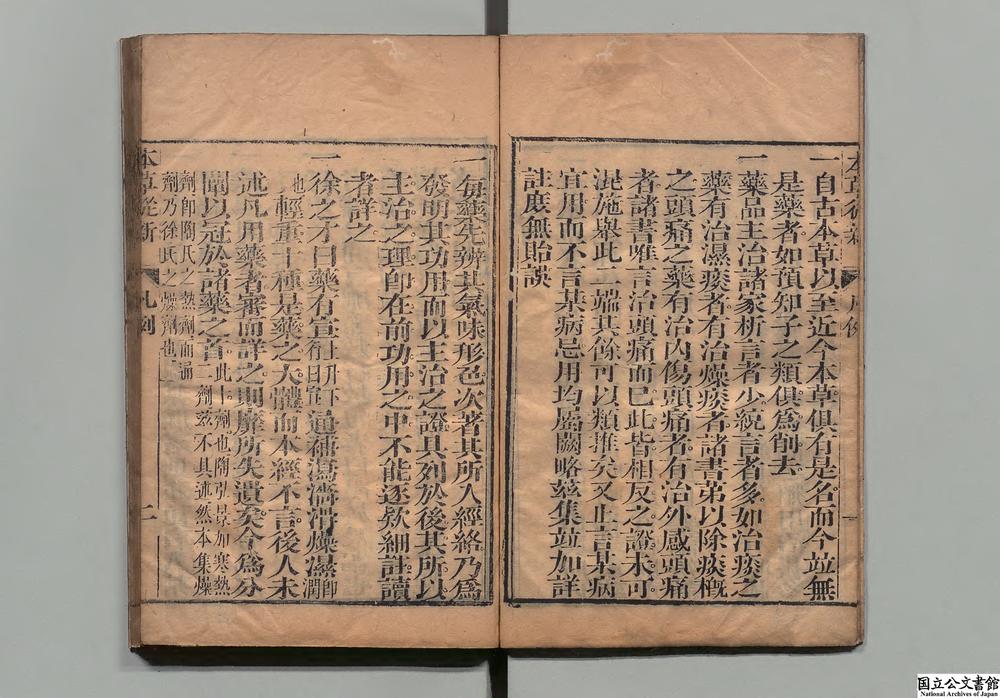 一自古本草以至近今本草俱有是名而今並無
是藥者如預知子之類俱爲削去
一藥品主治諸家析言者少統言者多如治痰之
藥有治濕痰者有治燥痰者諸書第以除痰概
之頭痛之藥有治內傷頭痛者有治外感頭痛
者諸書唯言治頭痛而已此皆相反之證未可
混施舉此二端其餘可以類推矣又止言某病
宜用而不言某病忌用均屬闕略茲集並加詳
註庶無貽誤
一每藥先辨其氣味形色次著其所入經絡乃爲
發明其功用而以主治之證具列於後其所以
主治之理即在前功用之中不能逐款細註讀
者詳之
一徐之才曰藥有宣補通瀉濇滑燥濕即潤
也輕重十種是藥之大體而本經不言後人未
述凡用藥者審而詳之則靡所失遺矣今爲分
闡以冠於諸藥之首此十劑也陶弘景加寒熱
二劑茲不具述然本集燥
劑即陶氏之熱劑而濕
劑乃徐氏之燥劑也
本草從新
凡例
二
国立公文書館
National Archives of Japan